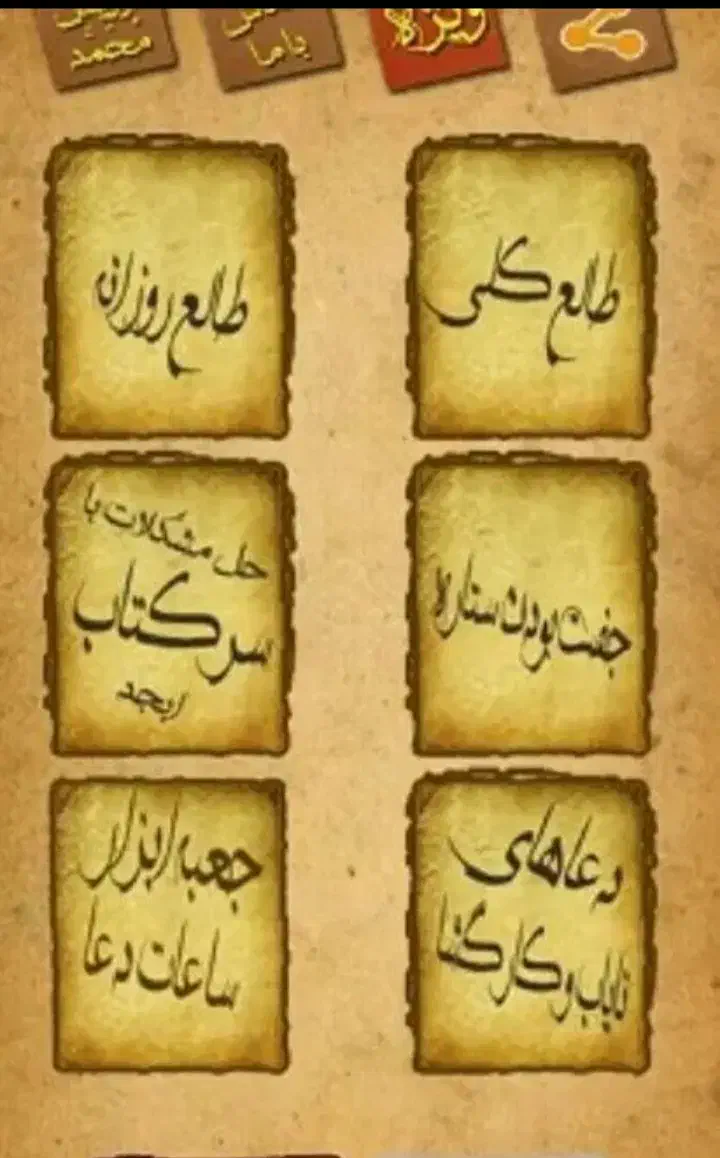 ویژه
باما
محمد
طالع کلی
طالع روزانه
جفت بودن ستاره
حل مشکلات با
سرکتاب
ابجد
دعاهای
نایاب و کارگشا
جعبه ابزار
ساعات دعا